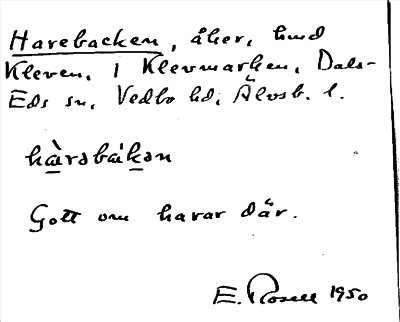 Harebacken, åker, hmd
Kleven, i Klevmarken, Dals-
Eds sn, Vedbo hd, Älvsb. l.
hàrəbàkən
Gott om harar där.
E. Rosell 1950